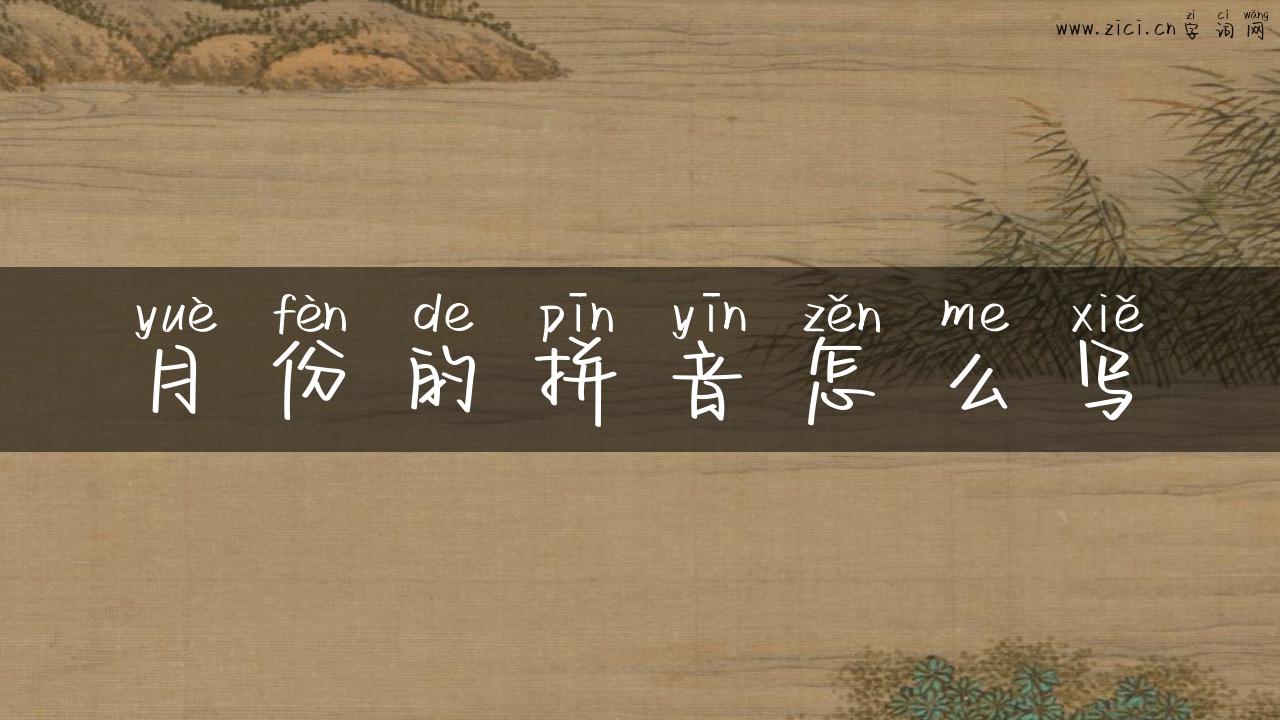 zì cí wǎng
www.zici.cn 字词网
yuè fèn de pīn yīn zěn me xiě
月份的拼音怎么写